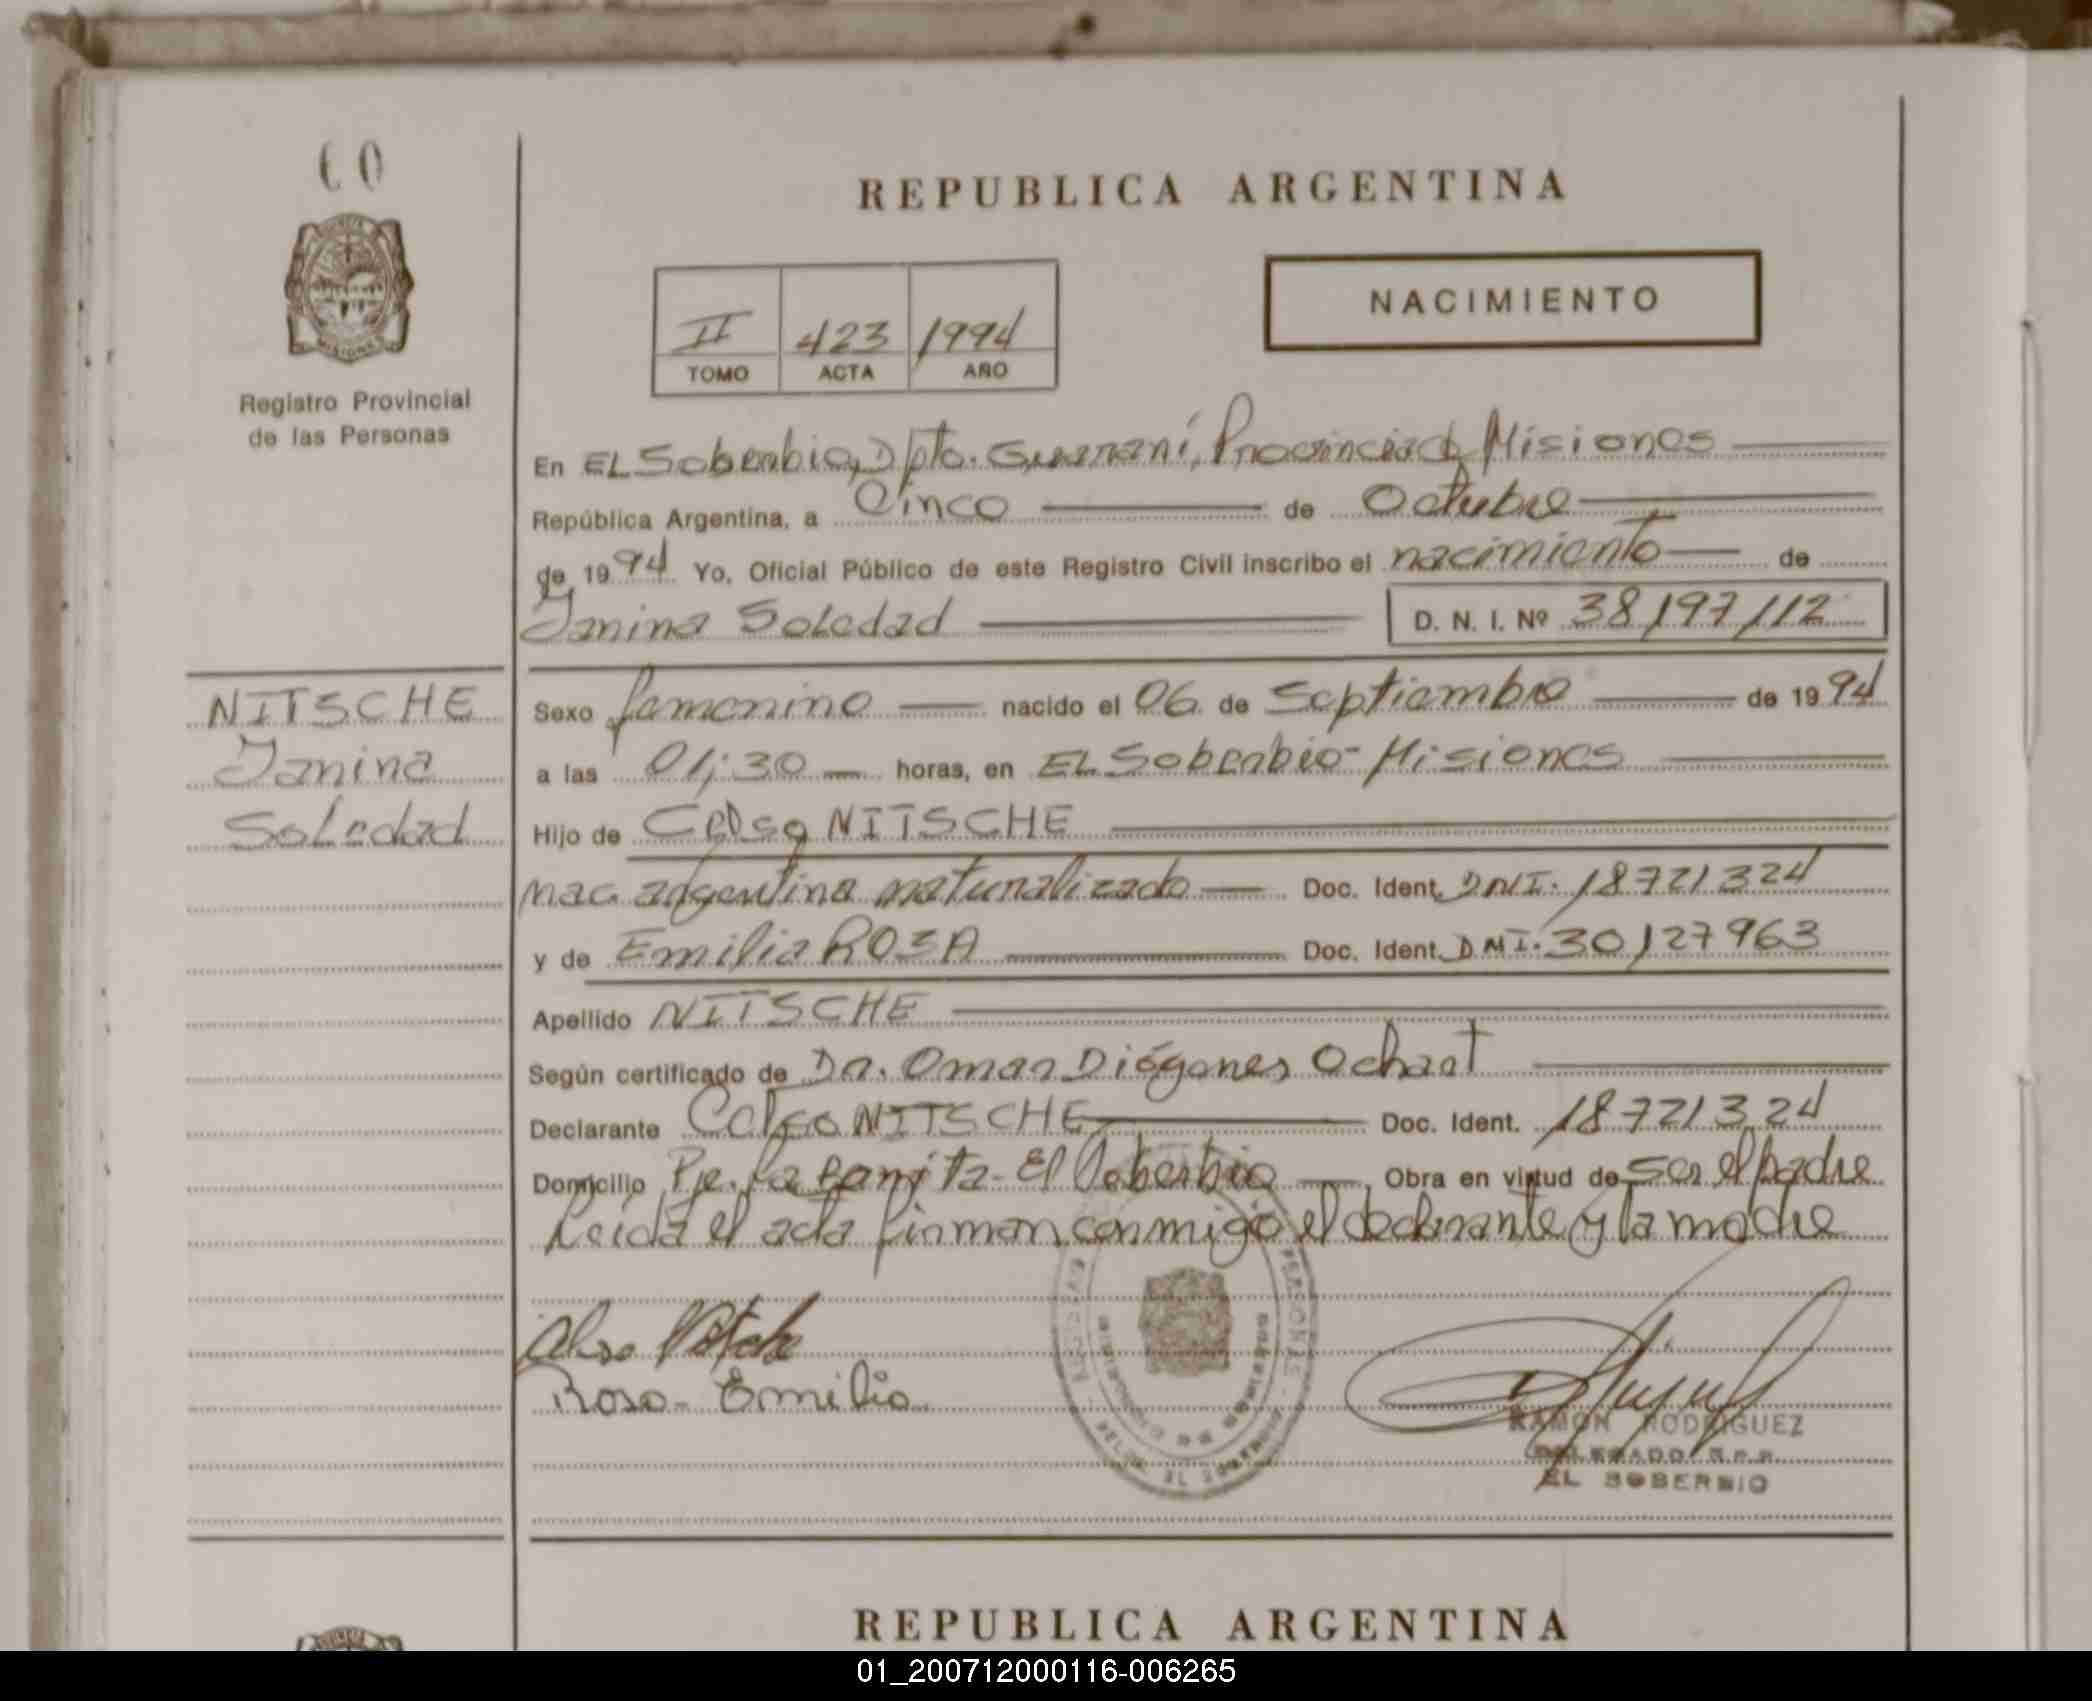 60
REPUBLICA ARGENTINA
NACIMIENTO
II 423 1994
TOMO ACTA AÑO
MISIONES
Registro Provincial
de las Personas
En EL Soberbio, Dpto. Guaraní, Provincia de Misiones
República Argentina, a Cinco de Octubre
de 1994 Yo, Oficial Público de este Registro Civil inscribo el nacimiento de
Janina Soledad D. N. I. Nº 38197112
NITSCHE
Janina
Soledad
Sexo femenino nacido el 06 de Septiembre de 1994
a las 01:30 horas, en EL Soberbio - Misiones
Hijo de Celso NITSCHE
nac. argentina naturalizado Doc. Ident. DNI. 18721324
y de Emilia ROSA Doc. Ident. DNI. 30127963
Apellido NITSCHE
Según certificado de Dr. Omar Diógenes Ochart
Declarante Celso NITSCHE Doc. Ident. 18721324
Domicilio Pje. La Bonita - El Soberbio Obra en virtud de ser el padre
Leída el acta firman conmigo el declarante y la madre
Rosa - Emilia
RAMON RODRIGUEZ
DELEGADO R.P.P.
EL SOBERBIO
REPUBLICA ARGENTINA
01_200712000116-006265